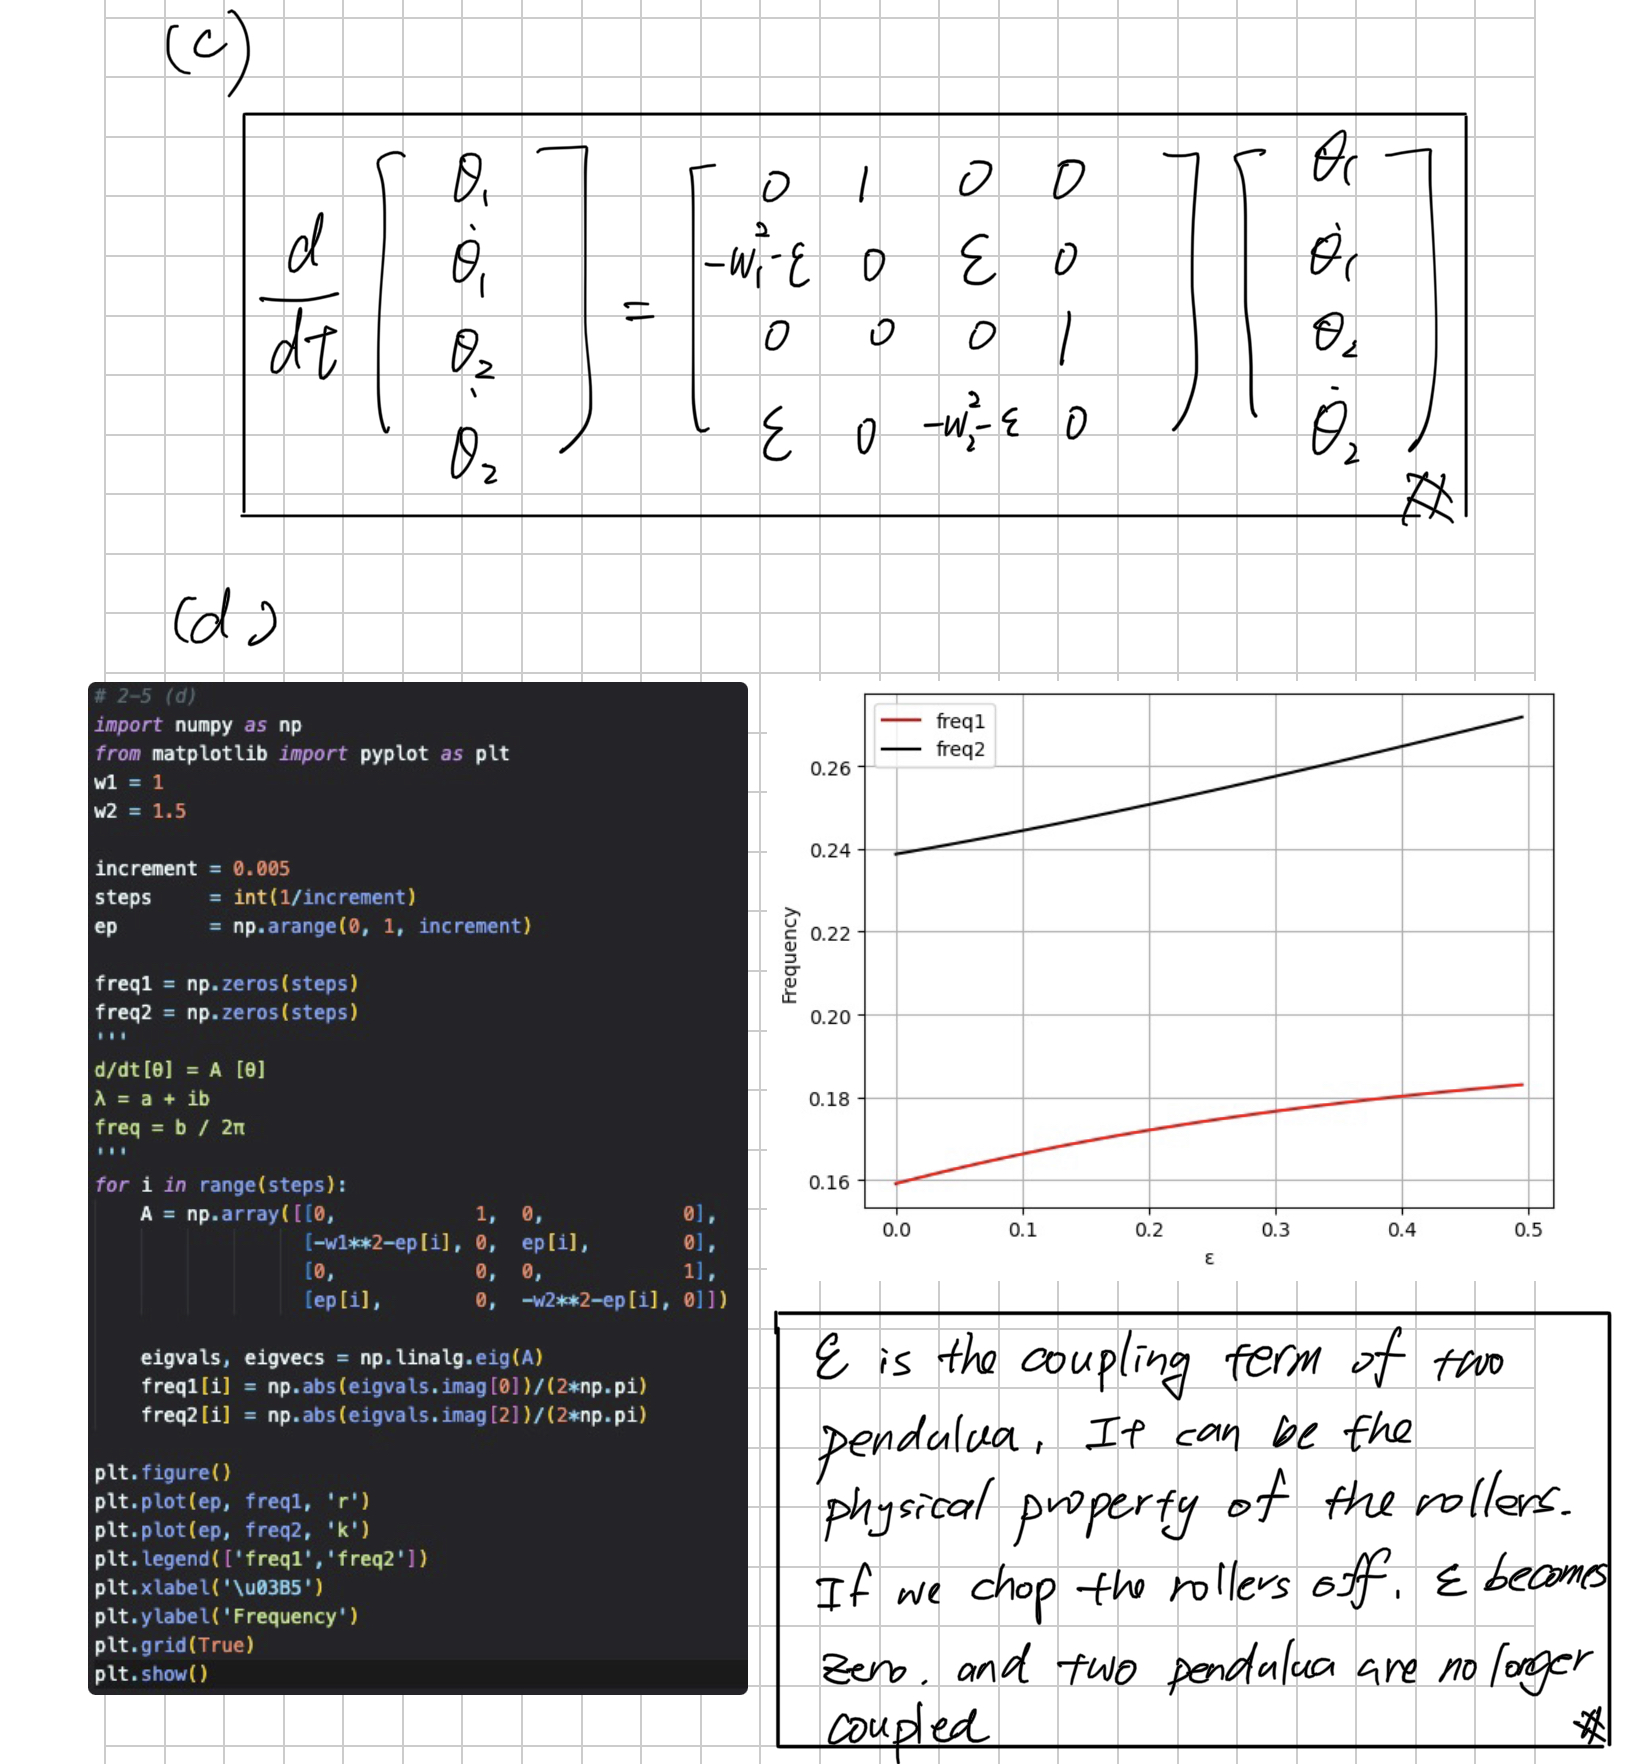 (c)
d/dt [θ₁ θ̇₁ θ₂ θ̇₂] = [0 1 0 0
-w₁²-ε 0 ε 0
0 0 0 1
ε 0 -w₂²-ε 0] [θ₁ θ̇₁ θ₂ θ̇₂]
#
(d)
# 2-5 (d)
import numpy as np
from matplotlib import pyplot as plt
w1 = 1
w2 = 1.5
increment = 0.005
steps = int(1/increment)
ep = np.arange(0, 1, increment)
freq1 = np.zeros(steps)
freq2 = np.zeros(steps)
'''
d/dt[θ] = A [θ]
λ = a + ib
freq = b / 2π
'''
for i in range(steps):
A = np.array([[0, 1, 0, 0],
[-w1**2-ep[i], 0, ep[i], 0],
[0, 0, 0, 1],
[ep[i], 0, -w2**2-ep[i], 0]])
eigvals, eigvecs = np.linalg.eig(A)
freq1[i] = np.abs(eigvals.imag[0])/(2*np.pi)
freq2[i] = np.abs(eigvals.imag[2])/(2*np.pi)
plt.figure()
plt.plot(ep, freq1, 'r')
plt.plot(ep, freq2, 'k')
plt.legend(['freq1','freq2'])
plt.xlabel('\u03B5')
plt.ylabel('Frequency')
plt.grid(True)
plt.show()
freq1
freq2
Frequency
0.26
0.24
0.22
0.20
0.18
0.16
0.0 0.1 0.2 0.3 0.4 0.5
ε
ε is the coupling term of two
pendulua. It can be the
physical property of the rollers.
If we chop the rollers off. ε becomes
zero. and two pendulua are no longer
coupled
#